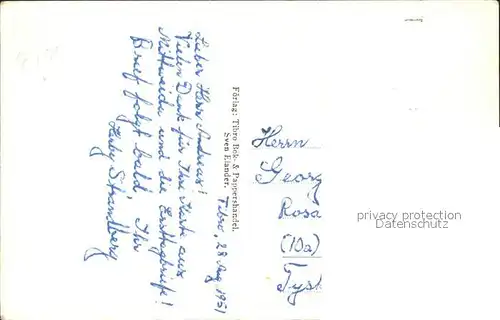 Tibro, 28 Aug 1951
Lieber Herr Andreas!
Vielen Dank für Ihre Karte aus
Mittweida und die Ersttagbriefe!
Brief folgt bald. Ihr
Strandberg
Förlag: Tibro Bok- & Pappershandel.
Sven Elander.
Herrn
Georg
Rosa
(10a)
privacy protection
Datenschutz